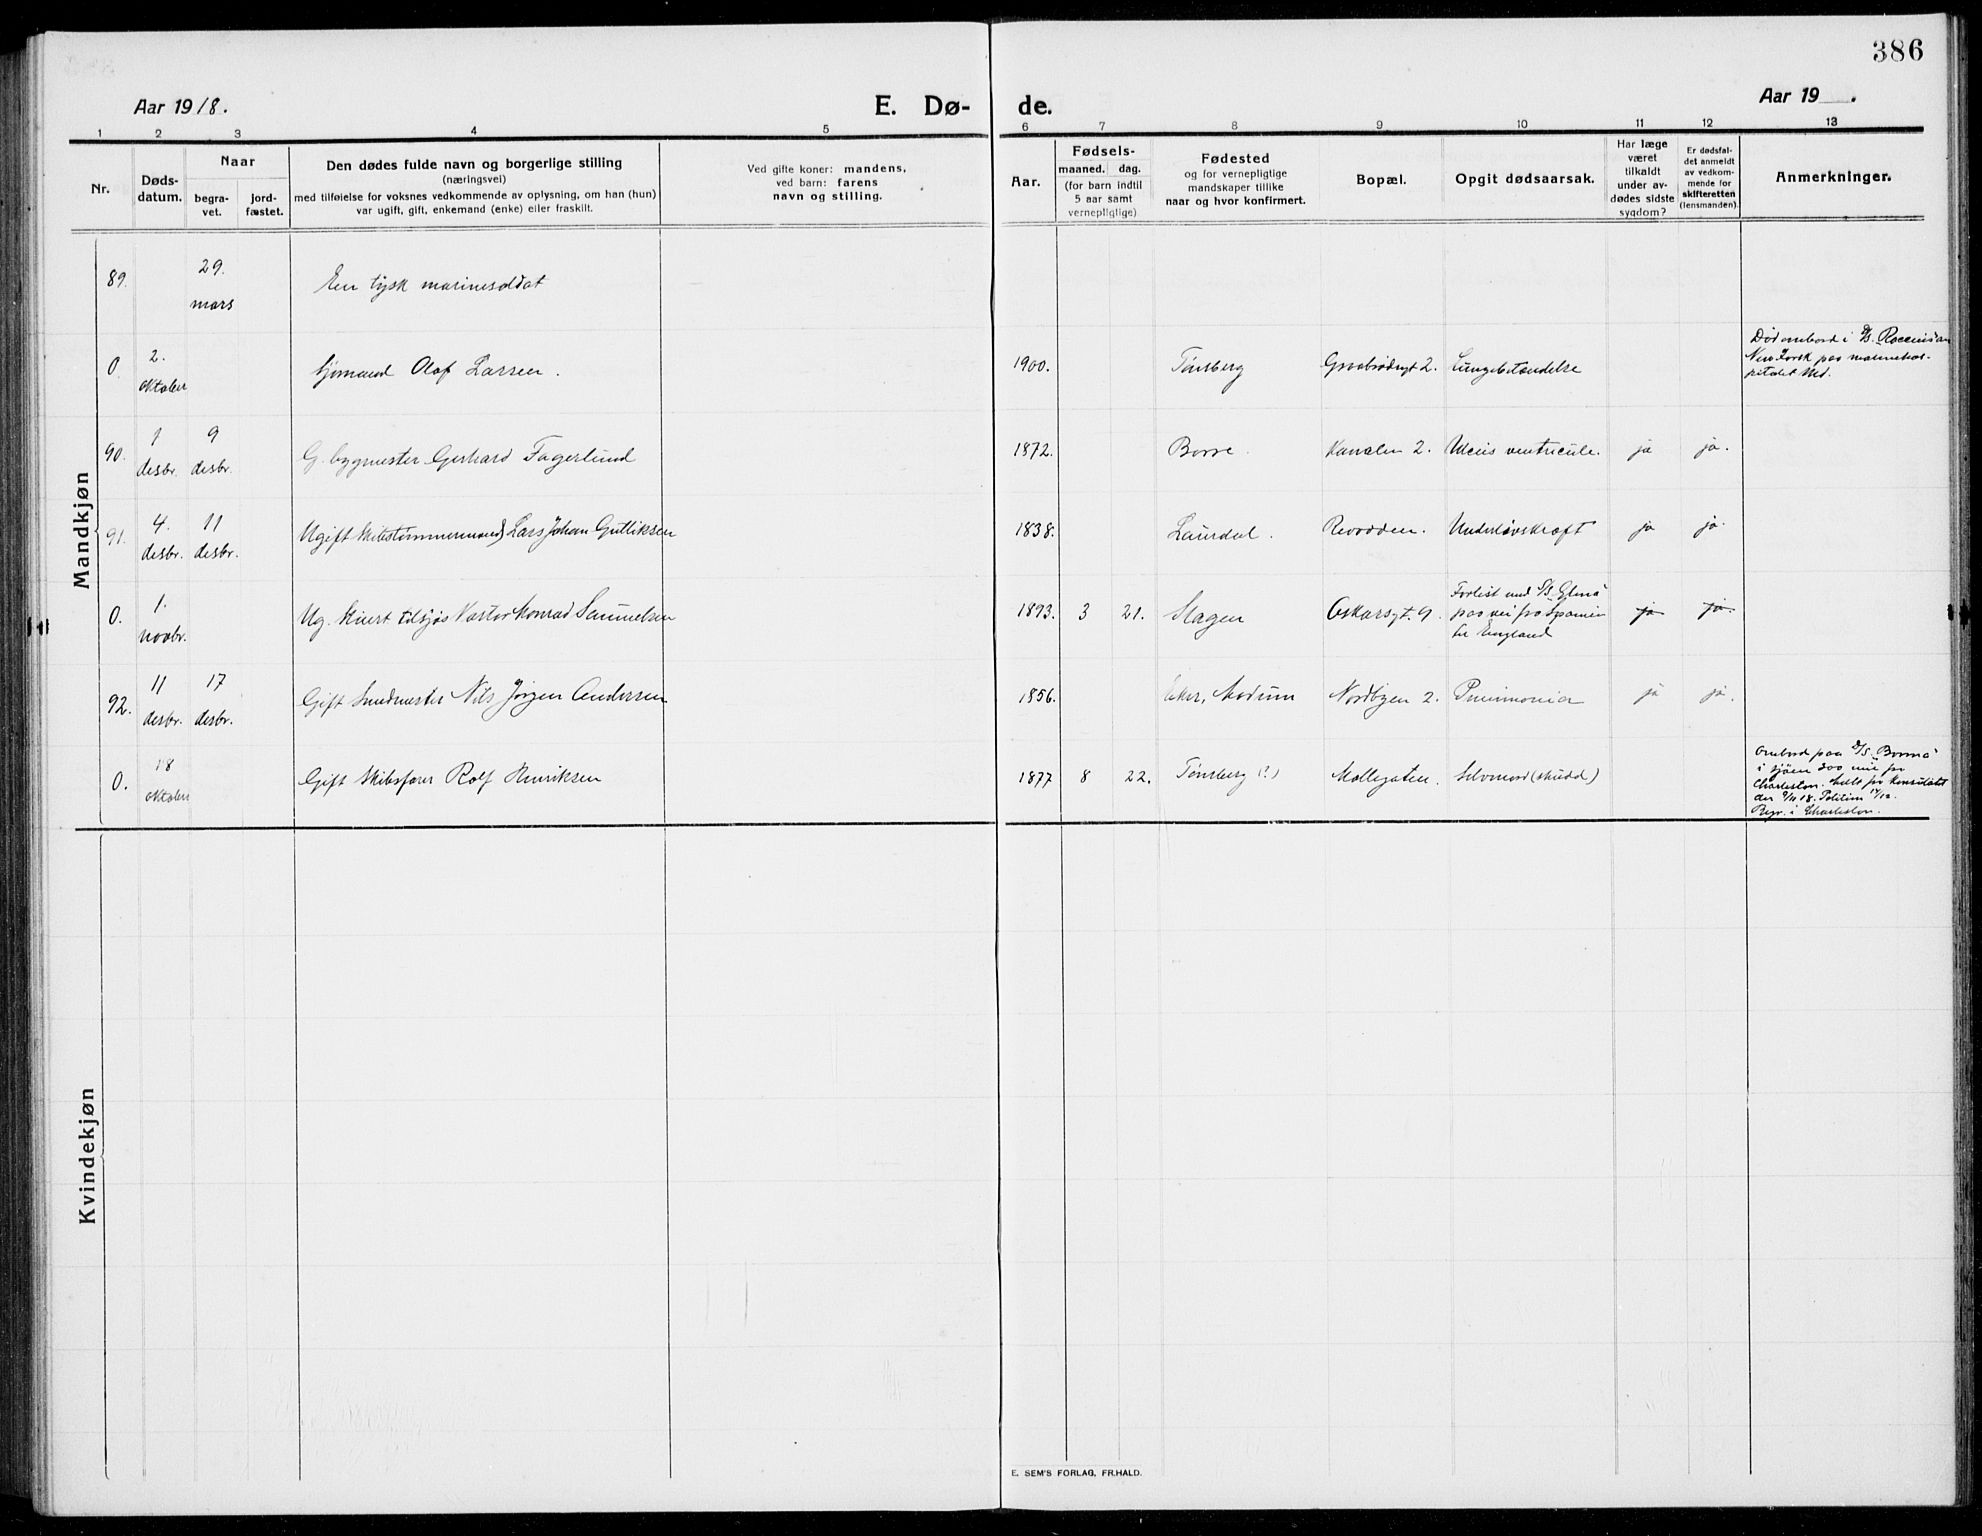 386
Aar 1918.
E. Dø- de.
Aar 19 .
1 2 3 4 5 6 7 8 9 10 11 12 13
Nr.
Døds-
datum.
Naar
begra-
vet.
jord-
fæstet.
Den dødes fulde navn og borgerlige stilling
(næringsvei)
med tilføielse for voksnes vedkommende av oplysning, om han (hun)
var ugift, gift, enkemand (enke) eller fraskilt.
Ved gifte koner: mandens,
ved barn: farens
navn og stilling.
Aar.
Fødsels-
maaned. dag.
(for barn indtil
5 aar samt
vernepligtige)
Fødested
og for vernepligtige
mandskaper tillike
naar og hvor konfirmert.
Bopæl.
Opgit dødsaarsak.
Har læge
været
tilkaldt
under av-
dødes sidste
sygdom?
Er dødsfal-
det anmeldt
av vedkom-
mende for
skifteretten
(lensmanden).
Anmerkninger.
Mandkjøn
89. 29. mars En tysk marinesoldat
0. 2. oktober Sjømand Olaf Larsen. 1900. Tønsberg Graabrødregt 2. Lungebetændelse
Død ombord i D/S
New York paa marinehos-
pitalet
90. 1 desbr. 9 desbr. G. bygmester Gerhard Fagerlund 1872. Borre. Kanalen 2. Ulcus ventricule. ja ja.
91. 4. desbr. 11 desbr. Ugift Skibstømmermand Lars Johan Gulliksen 1838. Laurdal. Revodden. Underlivskræft ja ja.
0. 1. novbr. Ug. Stuert tilsjøs Konrad Samuelsen 1893. 3 21. Slagen Oskarsgt. 9. Forlist med S/S
paa vei fra Spanien
til England ja ja.
92. 11 desbr. 17 desbr. Gift Smedmester Nils Jørgen Andersen 1856. Eker, Modum Nordbyen 2. Pneumonia ja ja.
0. 18 oktober Gift Skibsfører Rolf Henriksen 1877 8 22. Tønsberg (?) Møllegaten. Selvmord (skudd)
Ombord paa D/S
i sjøen 300 mil fra
Charleston. Meldt fra Konsulatet
Begr. i Charleston.
Kvindekjøn
E. SEM'S FORLAG, FR.HALD.